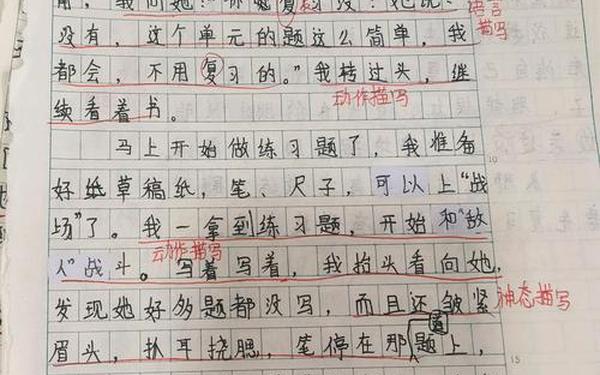 我问她：“你复习没？”她说： 语言
没有，这个单元的题这么简单，我 描写
都会，不用复习的。”我转过头，继
续看着书。 动作描写
马上开始做练习题了，我准备
10
好纸草稿纸，笔、尺子，可以上“战
场”了。我一拿到练习题，开始和“敌
人”战斗。写着写着，我抬头看向她，
动作描写
发现她好多题都没写，而且还皱紧 神态描写
眉头，扒耳挠腮，笔停在那道题上，
15